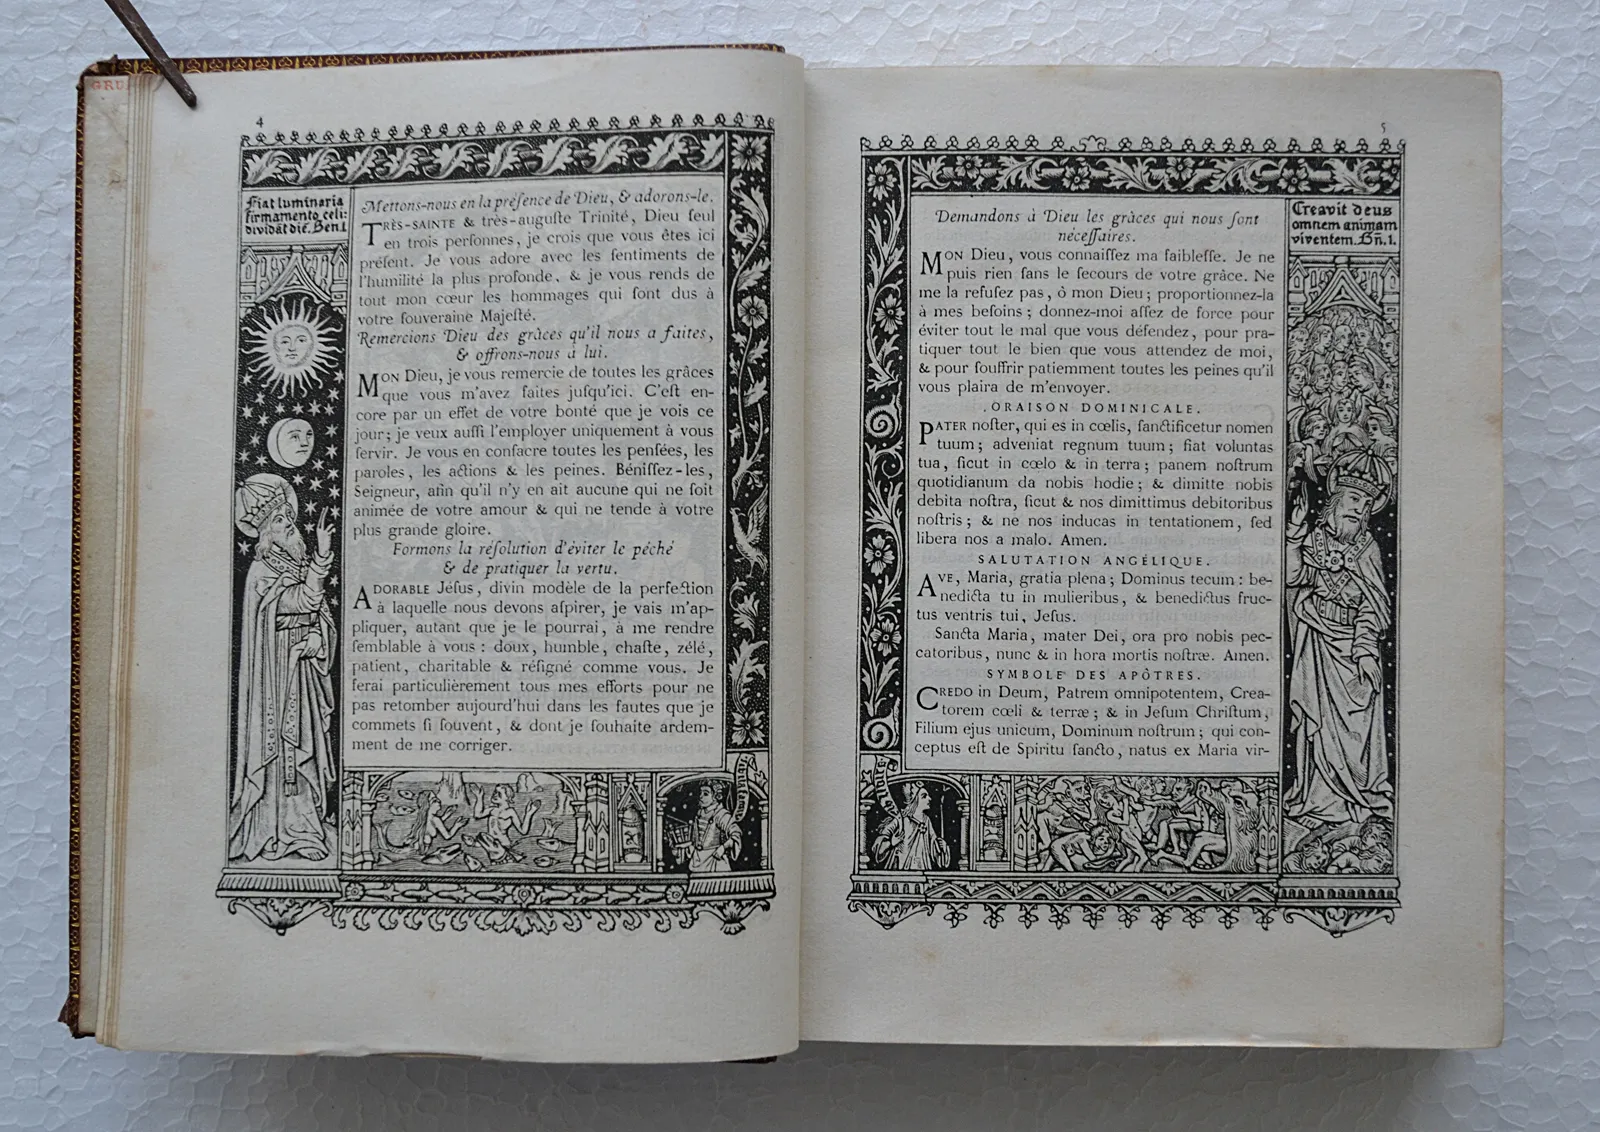 GRU
4
Fiat luminaria
firmamento celi:
dividāt diē. Gen. 1.
Mettons-nous en la préſence de Dieu, & adorons-le.
TRÈS-SAINTE & très-auguſte Trinité, Dieu ſeul
en trois perſonnes, je crois que vous êtes ici
préſent. Je vous adore avec les ſentiments de
l'humilité la plus profonde, & je vous rends de
tout mon cœur les hommages qui ſont dus à
votre ſouveraine Majeſté.
Remercions Dieu des grâces qu'il nous a faites,
& offrons-nous à lui.
MON Dieu, je vous remercie de toutes les grâces
que vous m'avez faites juſqu'ici. C'eſt en-
core par un effet de votre bonté que je vois ce
jour; je veux auſſi l'employer uniquement à vous
ſervir. Je vous en conſacre toutes les penſées, les
paroles, les actions & les peines. Béniſſez-les,
Seigneur, afin qu'il n'y en ait aucune qui ne ſoit
animée de votre amour & qui ne tende à votre
plus grande gloire.
Formons la réſolution d'éviter le péché
& de pratiquer la vertu.
ADORABLE Jéſus, divin modèle de la perfection
à laquelle nous devons aſpirer, je vais m'ap-
pliquer, autant que je le pourrai, à me rendre
ſemblable à vous : doux, humble, chaſte, zélé,
patient, charitable & réſigné comme vous. Je
ferai particulièrement tous mes efforts pour ne
pas retomber aujourd'hui dans les fautes que je
commets ſi ſouvent, & dont je ſouhaite ardem-
ment de me corriger.
5
Creavit deus
omnem animam
viventem. Gn̄. 1.
Demandons à Dieu les grâces qui nous ſont
néceſſaires.
MON Dieu, vous connaiſſez ma faibleſſe. Je ne
puis rien ſans le ſecours de votre grâce. Ne
me la refuſez pas, ô mon Dieu; proportionnez-la
à mes beſoins; donnez-moi aſſez de force pour
éviter tout le mal que vous défendez, pour pra-
tiquer tout le bien que vous attendez de moi,
& pour ſouffrir patiemment toutes les peines qu'il
vous plaira de m'envoyer.
ORAISON DOMINICALE.
PATER noſter, qui es in cœlis, ſanctificetur nomen
tuum; adveniat regnum tuum; fiat voluntas
tua, ſicut in cœlo & in terra; panem noſtrum
quotidianum da nobis hodie; & dimitte nobis
debita noſtra, ſicut & nos dimittimus debitoribus
noſtris; & ne nos inducas in tentationem, ſed
libera nos a malo. Amen.
SALUTATION ANGÉLIQUE.
AVE, Maria, gratia plena; Dominus tecum : be-
nedicta tu in mulieribus, & benedictus fruc-
tus ventris tui, Jeſus.
Sancta Maria, mater Dei, ora pro nobis pec-
catoribus, nunc & in hora mortis noſtræ. Amen.
SYMBOLE DES APÔTRES.
CREDO in Deum, Patrem omnipotentem, Crea-
torem cœli & terræ; & in Jeſum Chriſtum,
Filium ejus unicum, Dominum noſtrum; qui con-
ceptus eſt de Spiritu ſancto, natus ex Maria vir-